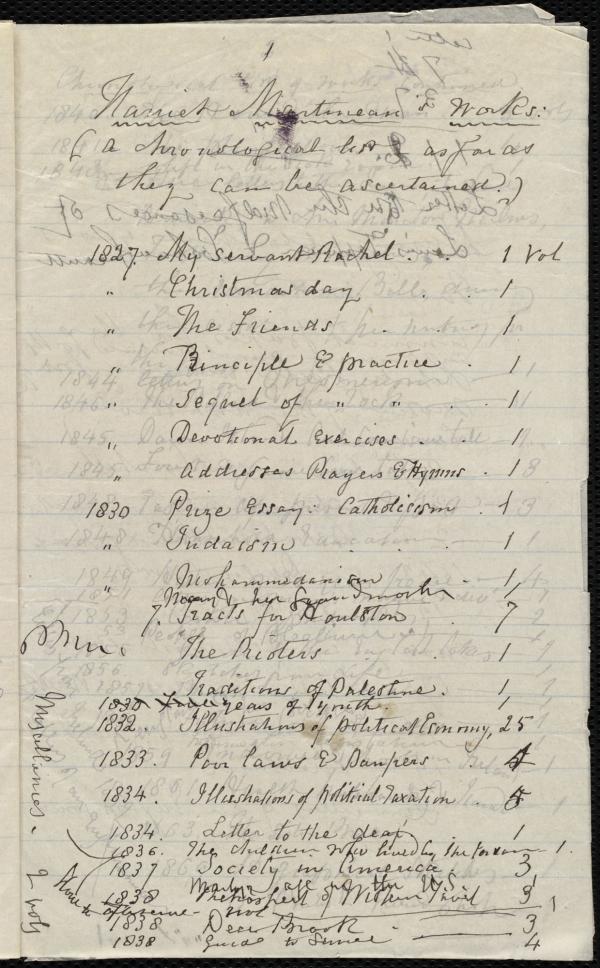 1
Harriet Martineau's Works:
(a chronological list as far as
they can be ascertained.)
1827. My Servant Rachel. . 1 Vol
" Christmas day . . 1
" The Friends . . 1
" Principle & practice . 1
" Sequel of " " 1
" Devotional Exercises . . 1
" Addresses Prayers & Hymns . 1
1830 Prize Essay: Catholicism . 1
" Judaism . . . 1
" Mohammedanism 1
& her Grandmother 1
7. Tracts for Houlston 7
The Rioters 1
Traditions of Palestine. 1
1830 years of Youth. 1
1832. Illustrations of political Economy, 25
1833. Poor laws & Paupers 4
1834. Illustrations of political Taxation . 5
1834. Letter to the deaf 1
1836. The children who lived by the 1.
1837 Society in America 3
in the U.S. 1
1838 Retrospect of Western Travel 3
How to observe 1
1838 Deerbrook . 3
1838 Guide to Service 4
Miscellanies. 2 vols